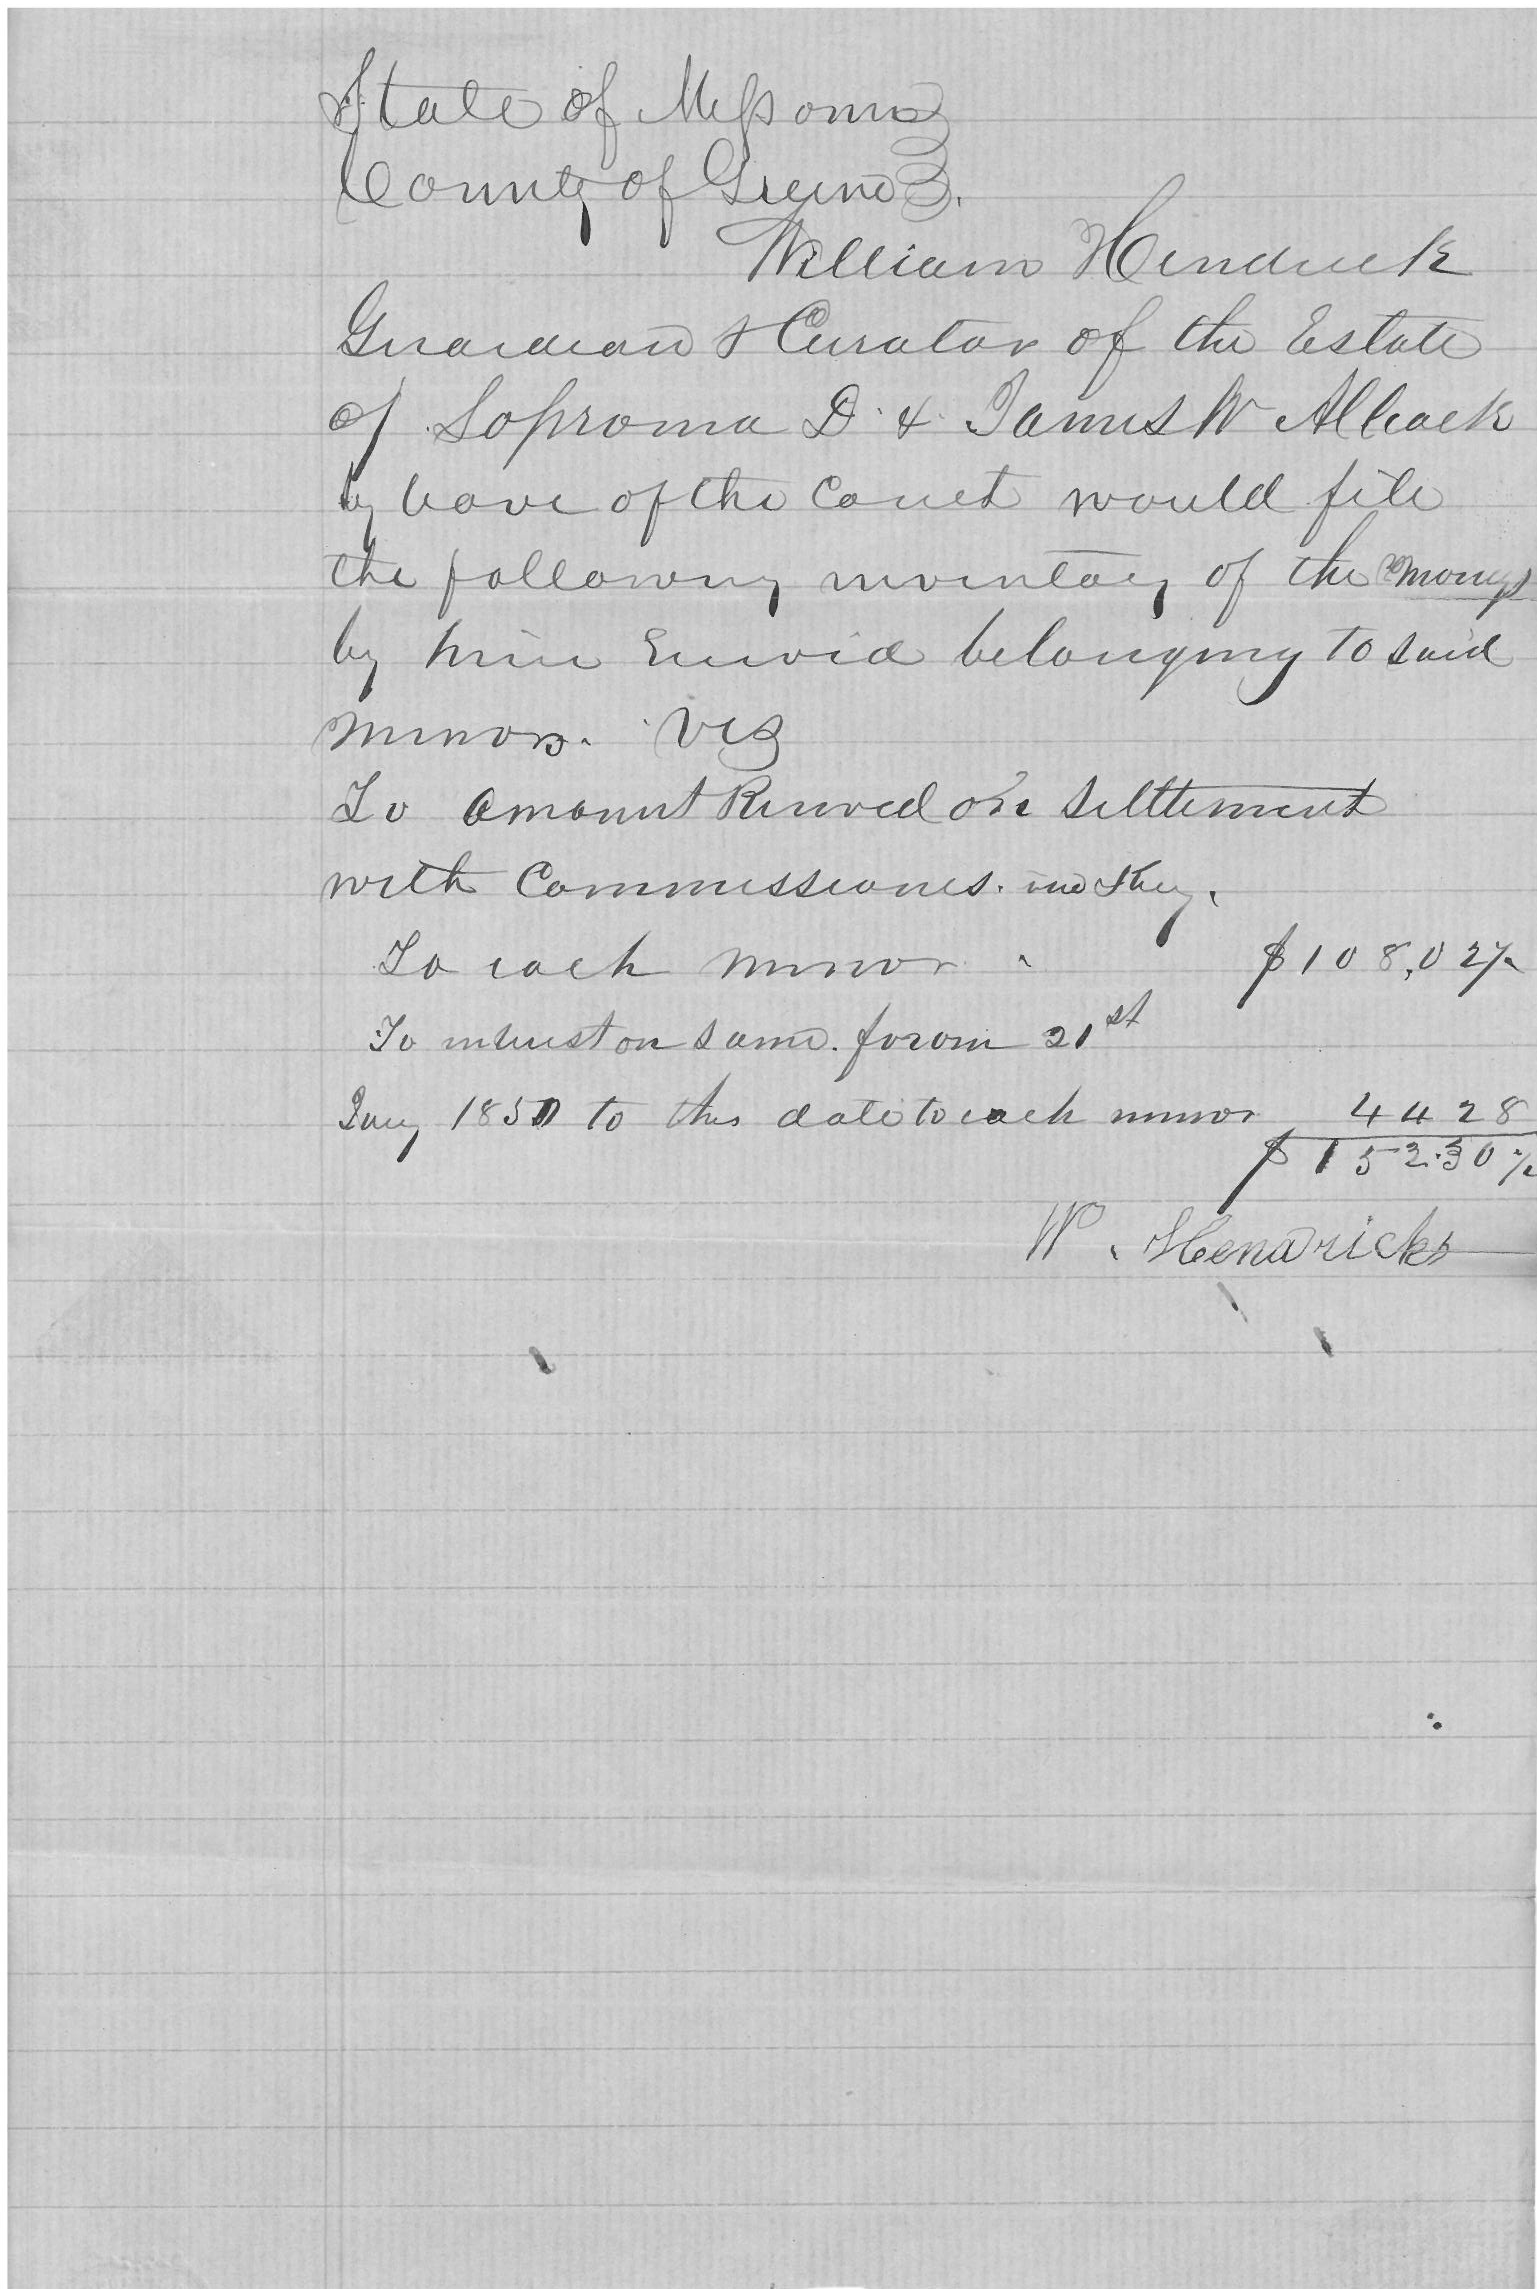 State of Missouri
County of Greene
William Hendrick
Guardian & Curator of the Estate
of Sophronia D. & James W Allcock
by leave of the Court would file
the following inventory of the moneys
by him Received belonging to said
minors. Viz
To amount Received on settlement
with Commissioner. in Ky.
To each minor $108,02½
To interest on same. from 21st
Jany 185 to this date to each minor 44 28
$152.30½
W. Hendricks